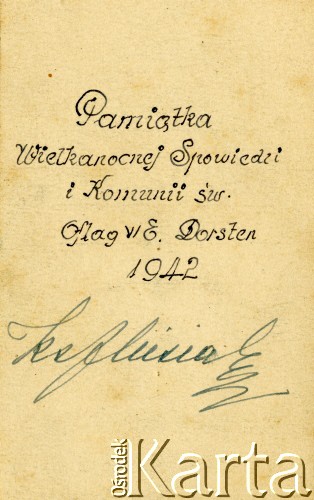 Pamiątka
Wielkanocnej Spowiedzi
i Komunii św.
Oflag VI E. Dorsten
1942
ks
Ośrodek
Karta